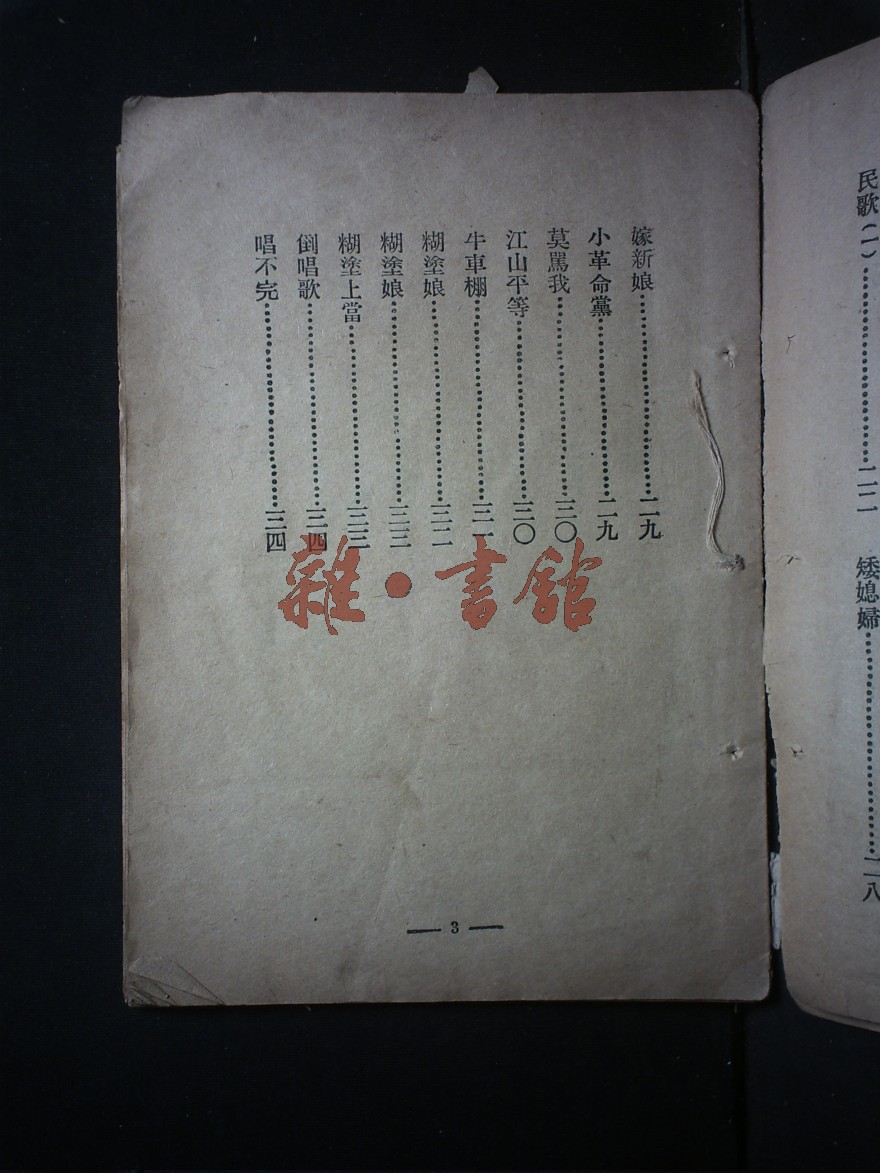 民歌(一)……二二 矮媳婦……二八
嫁新娘……二九
小革命黨……二九
莫罵我……三〇
江山平等……三〇
牛車棚……三一
糊塗娘……三二
糊塗娘……三三
糊塗上當……三三
倒唱歌……三四
唱不完……三四
雜·書館
— 3 —